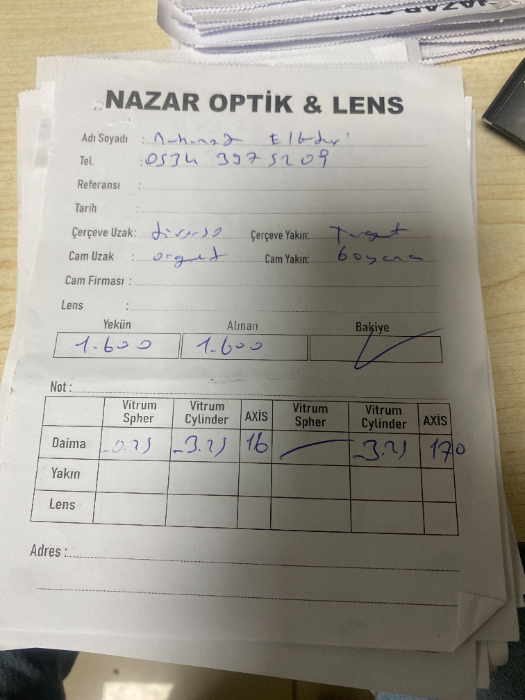 NAZAR OPTİK & LENS
Adı Soyadı :
Tel. : 0534 3975209
Referansı :
Tarih :
Çerçeve Uzak: Çerçeve Yakın:
Cam Uzak : Cam Yakın:
Cam Firması :
Lens :
Yekün Alınan Bakiye
1.600 1.600
Not :
Vitrum Spher Vitrum Cylinder AXİS Vitrum Spher Vitrum Cylinder AXİS
Daima -0.25 -3.25 16 -3.25 170
Yakın
Lens
Adres :